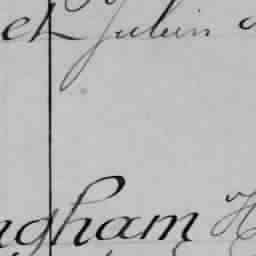 et Julien
ngham H